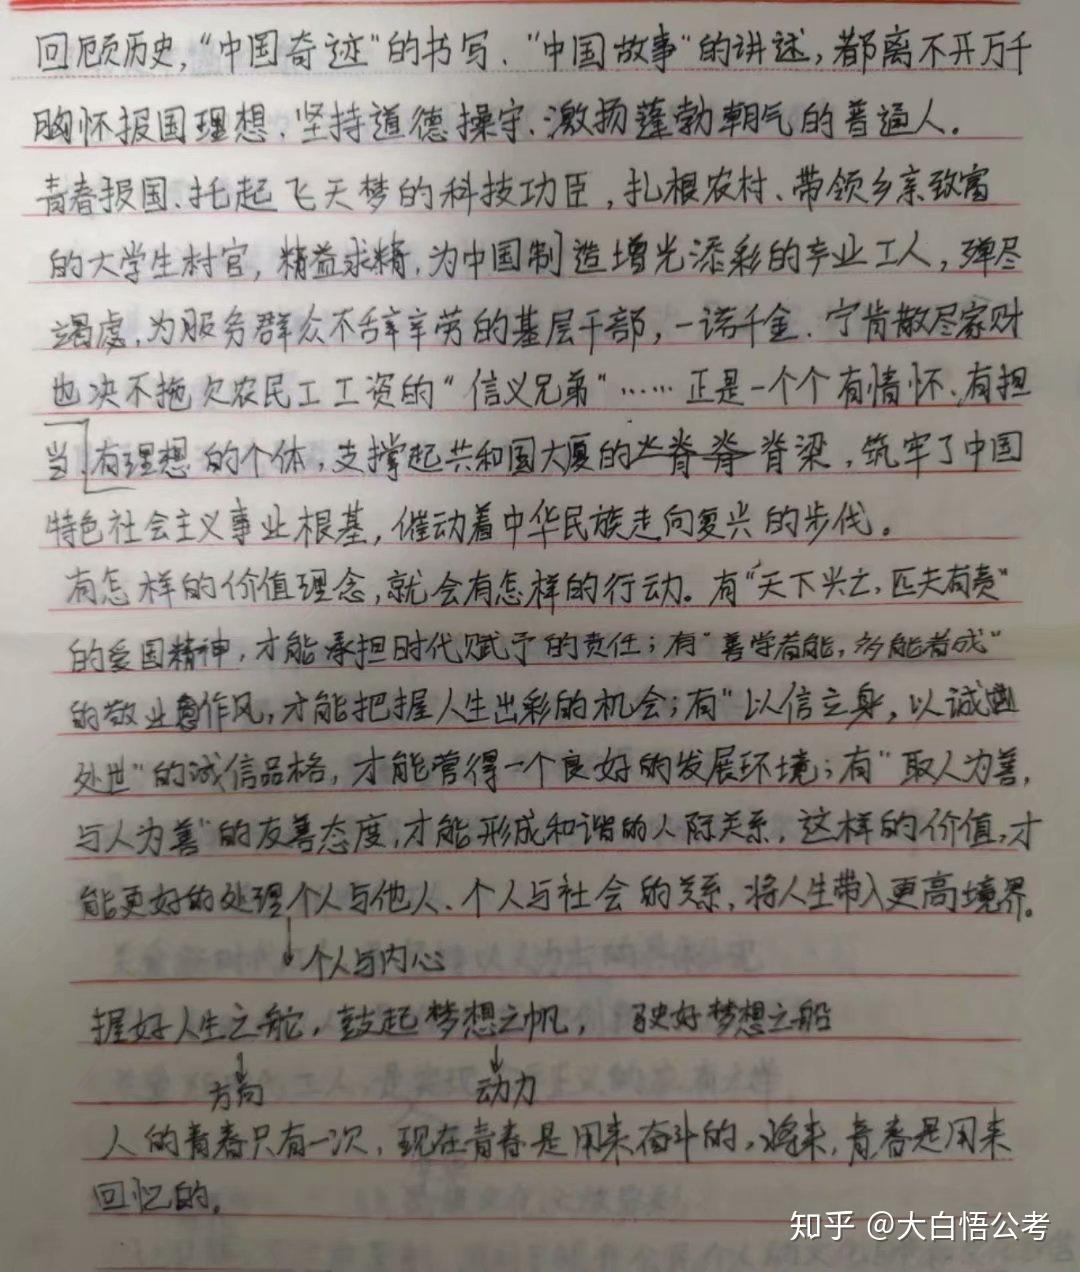 回顾历史，“中国奇迹”的书写、“中国故事”的讲述，都离不开万千
胸怀报国理想、坚持道德操守、激扬蓬勃朝气的普通人。
青春报国、托起飞天梦的科技功臣，扎根农村、带领乡亲致富
的大学生村官，精益求精，为中国制造增光添彩的产业工人，殚尽
竭虑，为服务群众不辞辛劳的基层干部，一诺千金、宁肯散尽家财
也决不拖欠农民工工资的“信义兄弟”……正是一个个有情怀、有担
当、有理想的个体，支撑起共和国大厦的脊梁，筑牢了中国
特色社会主义事业根基，催动着中华民族走向复兴的步伐。
有怎样的价值理念，就会有怎样的行动。有“天下兴亡，匹夫有责”
的爱国精神，才能承担时代赋予的责任；有“善学者能，多能者成”
的敬业作风，才能把握人生出彩的机会；有“以信立身，以诚
处世”的诚信品格，才能营得一个良好的发展环境；有“取人为善，
与人为善”的友善态度，才能形成和谐的人际关系。这样的价值，才
能更好的处理个人与他人、个人与社会的关系，将人生带入更高境界。
个人与内心
握好人生之舵，鼓起梦想之帆，驶好梦想之船
方向 动力
人的青春只有一次，现在青春是用来奋斗的，将来，青春是用来
回忆的。
知乎 @大白悟公考